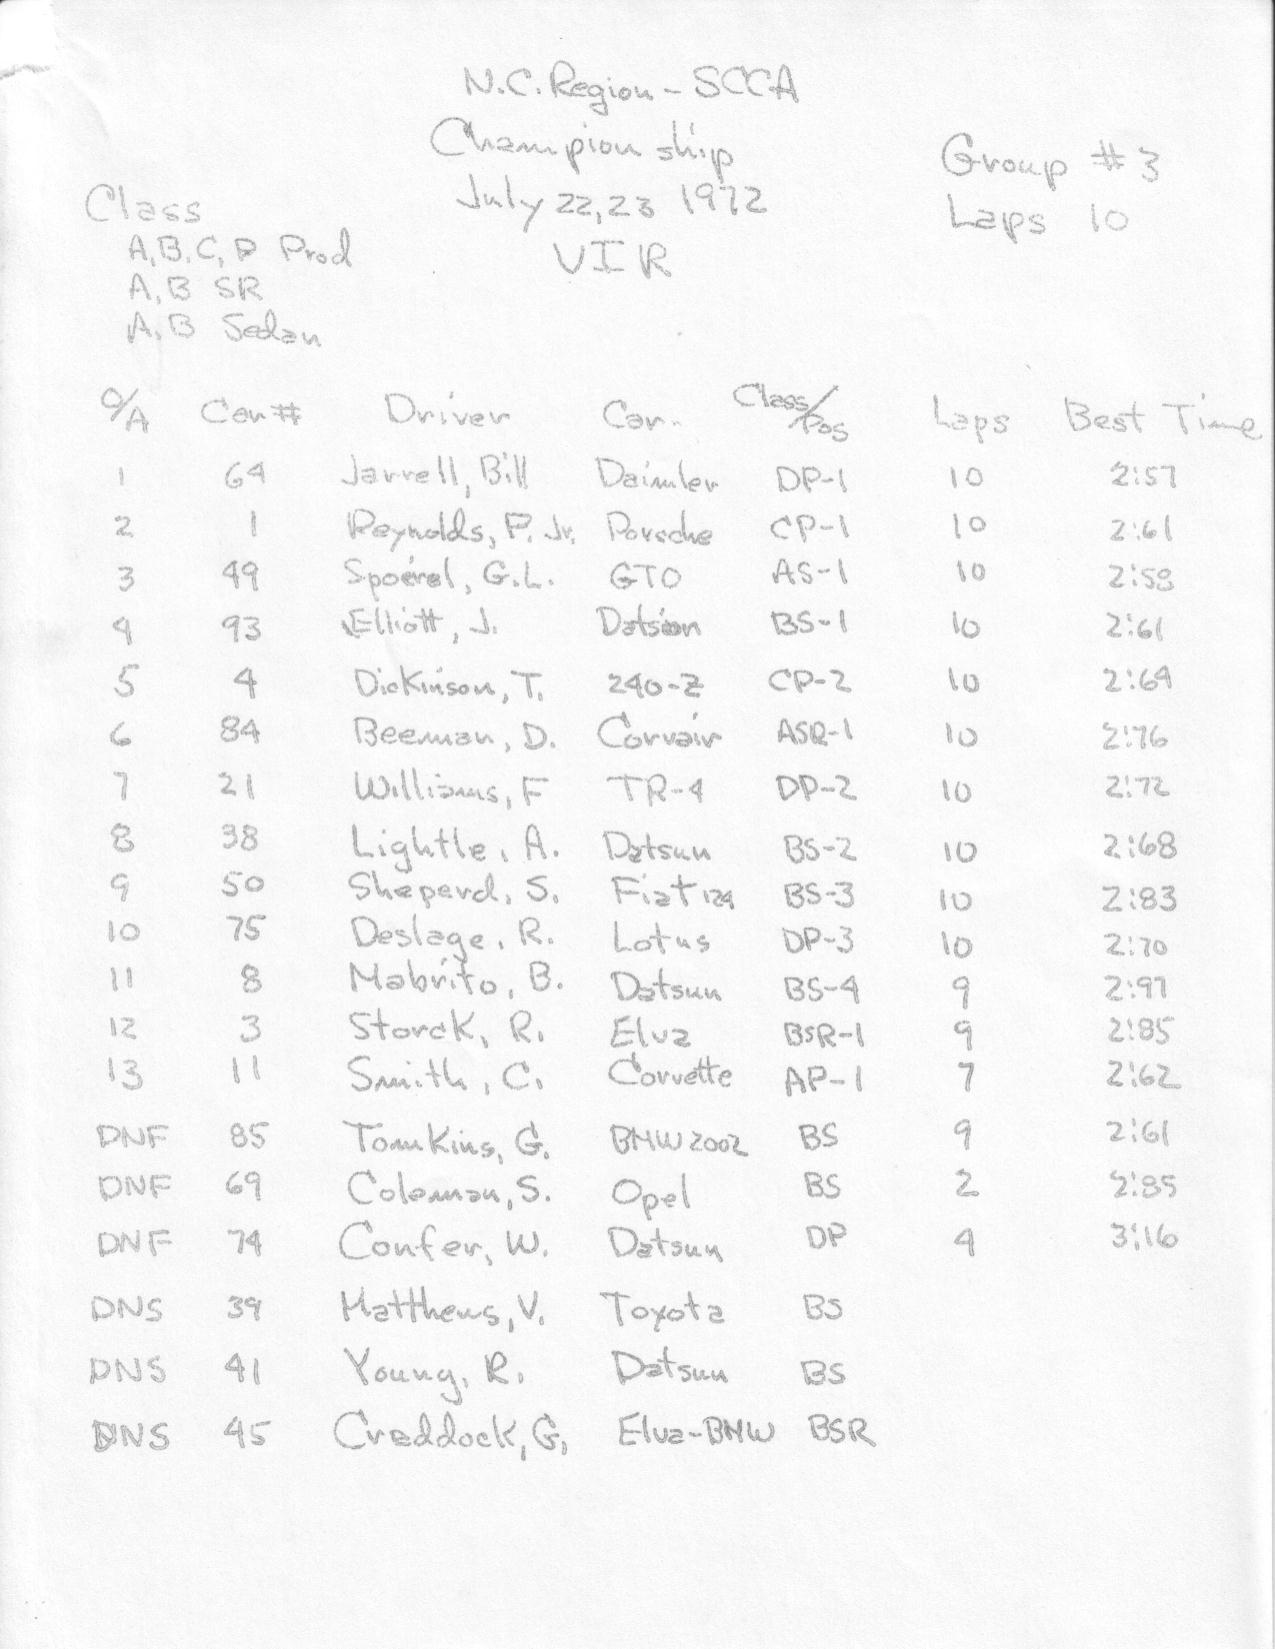 N.C. Region - SCCA
Championship
July 22,23 1972
VIR
Group #3
Laps 10
Class
A,B,C,D Prod
A,B SR
A,B Sedan
O/A Car# Driver Car Class/Pos Laps Best Time
1 64 Jarrell, Bill Daimler DP-1 10 2:57
2 1 Reynolds, P. Jr. Porsche CP-1 10 2:61
3 49 Spoerel, G.L. GTO AS-1 10 2:58
4 93 Elliott, J. Datsun BS-1 10 2:61
5 4 Dickinson, T. 240-Z CP-2 10 2:64
6 84 Beeman, D. Corvair ASR-1 10 2:76
7 21 Williams, F TR-4 DP-2 10 2:72
8 38 Lightle, A. Datsun BS-2 10 2:68
9 50 Sheperd, S. Fiat 124 BS-3 10 2:83
10 75 Deslage, R. Lotus DP-3 10 2:70
11 8 Mabrito, B. Datsun BS-4 9 2:97
12 3 Storck, R. Elva BSR-1 9 2:85
13 11 Smith, C. Corvette AP-1 7 2:62
DNF 85 Tomkins, G. BMW 2002 BS 9 2:61
DNF 69 Coleman, S. Opel BS 2 2:85
DNF 74 Confer, W. Datsun DP 4 3:16
DNS 39 Matthews, V. Toyota BS
DNS 41 Young, R. Datsun BS
DNS 45 Craddock, G. Elva-BMW BSR